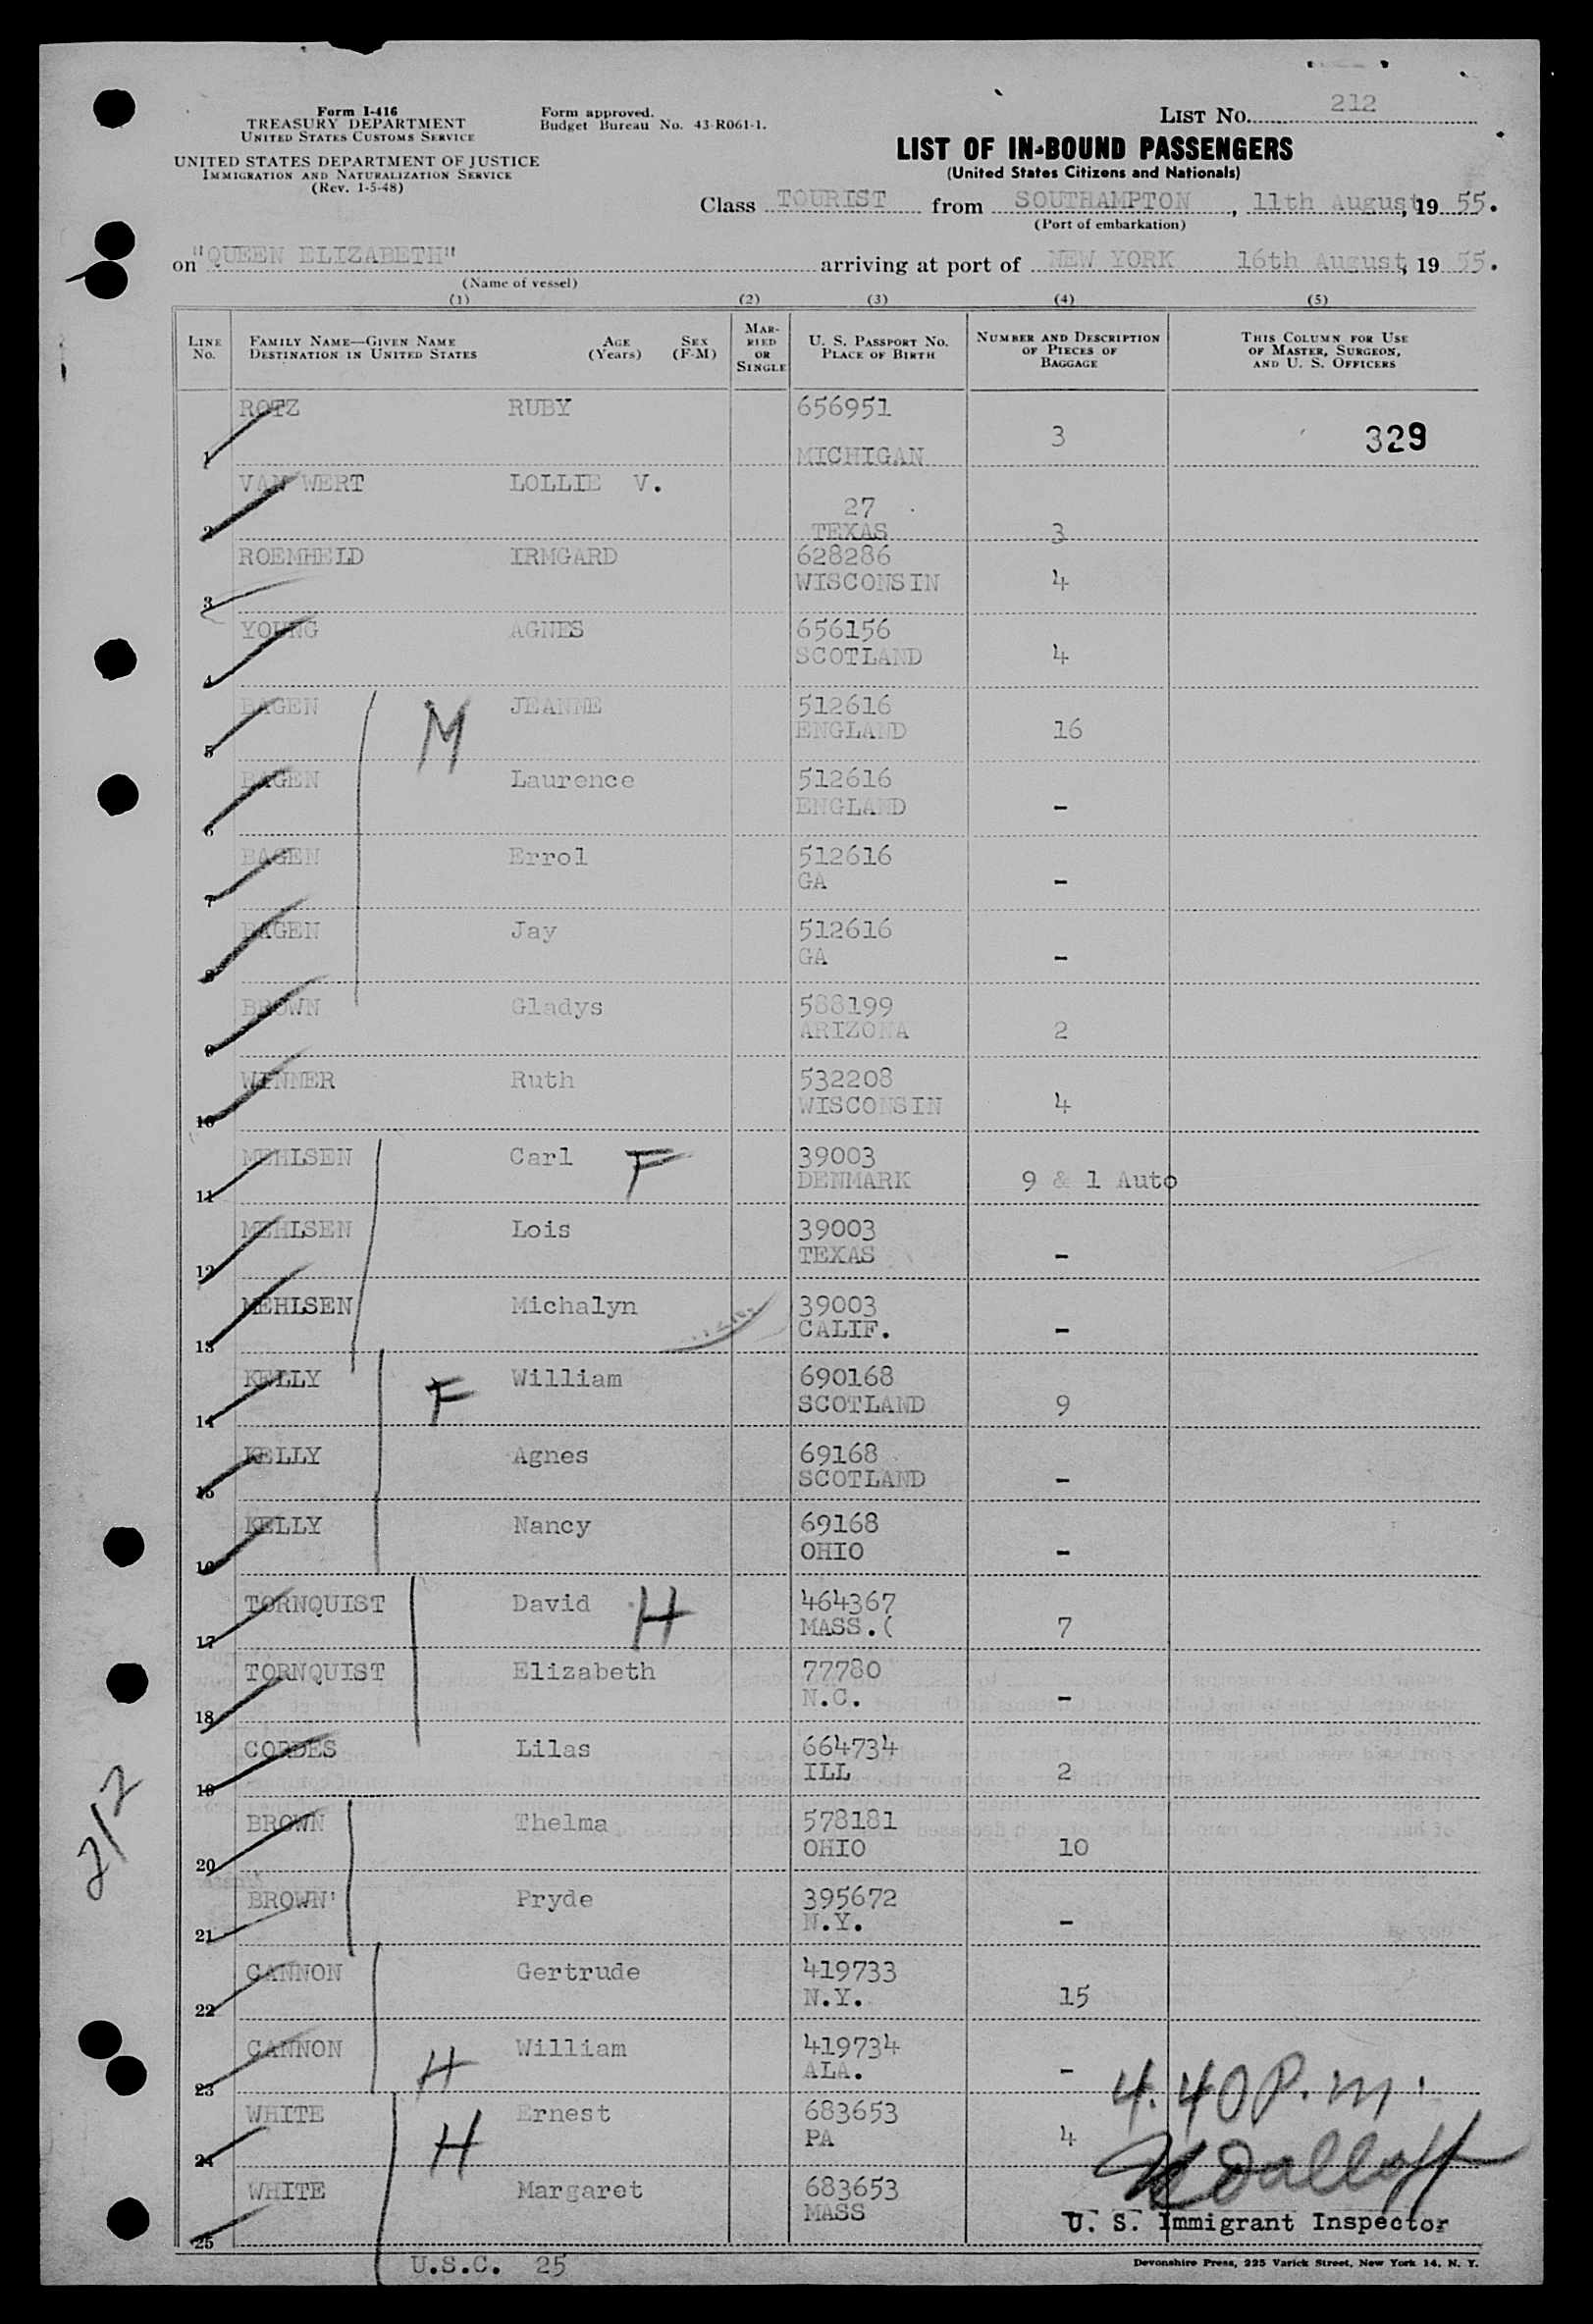 Form I-416
TREASURY DEPARTMENT
UNITED STATES CUSTOMS SERVICE
UNITED STATES DEPARTMENT OF JUSTICE
IMMIGRATION AND NATURALIZATION SERVICE
(Rev. 1-5-48)
Form approved.
Budget Bureau No. 43-R061-1.
LIST NO. 212
LIST OF IN-BOUND PASSENGERS
(United States Citizens and Nationals)
Class TOURIST from SOUTHAMPTON, 11th August, 19 55.
(Port of embarkation)
on "QUEEN ELIZABETH" arriving at port of NEW YORK 16th August, 19 55.
(Name of vessel)
(1) (2) (3) (4) (5)
LINE NO. FAMILY NAME—GIVEN NAME DESTINATION IN UNITED STATES AGE (Years) SEX (F-M) MARRIED OR SINGLE U. S. PASSPORT NO. PLACE OF BIRTH NUMBER AND DESCRIPTION OF PIECES OF BAGGAGE THIS COLUMN FOR USE OF MASTER, SURGEON, AND U. S. OFFICERS
1 ROTZ RUBY 656951 MICHIGAN 3 329
2 VAN WERT LOLLIE V. 27 TEXAS 3
3 ROEMHELD IRMGARD 628286 WISCONSIN 4
4 YOUNG AGNES 656156 SCOTLAND 4
5 BAGEN M JEANNE 512616 ENGLAND 16
6 BAGEN Laurence 512616 ENGLAND -
7 BAGEN Errol 512616 GA -
8 BAGEN Jay 512616 GA -
9 BROWN Gladys 588199 ARIZONA 2
10 WINNER Ruth 532208 WISCONSIN 4
11 MEHLSEN Carl F 39003 DENMARK 9 & 1 Auto
12 MEHLSEN Lois 39003 TEXAS -
13 MEHLSEN Michalyn 39003 CALIF. -
14 KELLY F William 690168 SCOTLAND 9
15 KELLY Agnes 69168 SCOTLAND -
16 KELLY Nancy 69168 OHIO -
17 TORNQUIST David H 464367 MASS.( 7
18 TORNQUIST Elizabeth 77780 N.C. -
19 CORDES Lilas 664734 ILL 2
20 BROWN Thelma 578181 OHIO 10
21 BROWN' Pryde 395672 N.Y. -
22 CANNON Gertrude 419733 N.Y. 15
23 CANNON H William 419734 ALA. -
24 WHITE H Ernest 683653 PA 4
25 WHITE Margaret 683653 MASS
4.40 P.m.
U. S. Immigrant Inspector
U.S.C. 25
Devonshire Press, 225 Varick Street, New York 14, N. Y.
212